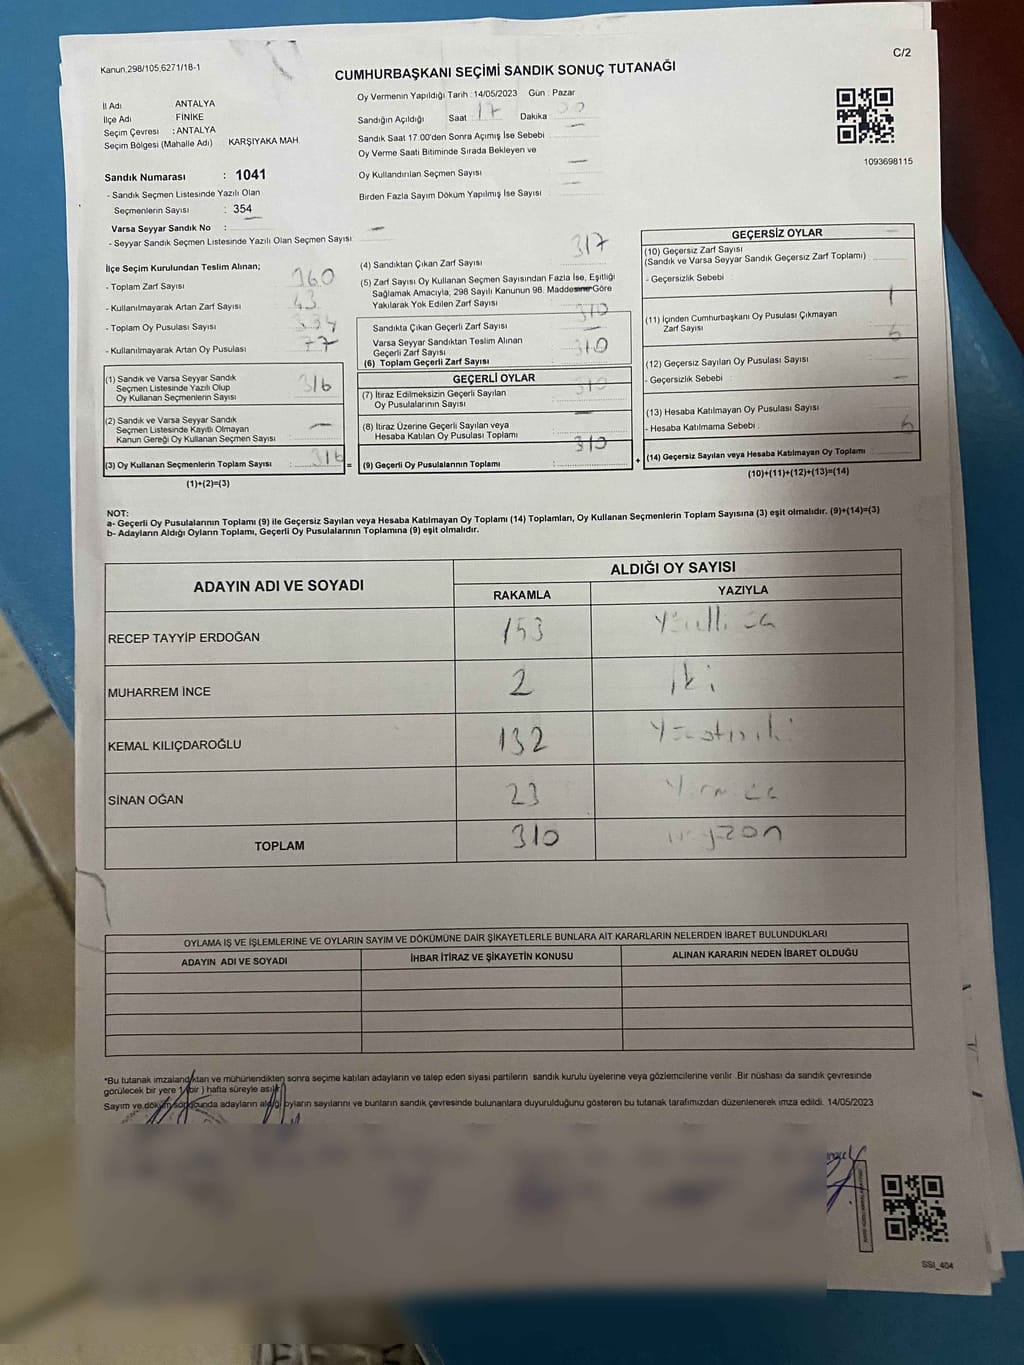 Kanun,298/105,6271/18-1
C/2
CUMHURBAŞKANI SEÇİMİ SANDIK SONUÇ TUTANAĞI
İl Adı ANTALYA
İlçe Adı FİNİKE
Seçim Çevresi : ANTALYA
Seçim Bölgesi (Mahalle Adı) KARŞIYAKA MAH
Sandık Numarası : 1041
- Sandık Seçmen Listesinde Yazılı Olan
Seçmenlerin Sayısı : 354
Varsa Seyyar Sandık No :
- Seyyar Sandık Seçmen Listesinde Yazılı Olan Seçmen Sayısı
Oy Vermenin Yapıldığı Tarih : 14/05/2023 Gün : Pazar
Sandığın Açıldığı Saat 17 Dakika
Sandık Saat 17.00'den Sonra Açımış İse Sebebi
Oy Verme Saati Bitiminde Sırada Bekleyen ve
Oy Kullandırılan Seçmen Sayısı
Birden Fazla Sayım Döküm Yapılmış İse Sayısı
1093698115
İlçe Seçim Kurulundan Teslim Alınan;
- Toplam Zarf Sayısı 360
- Kullanılmayarak Artan Zarf Sayısı 43
- Toplam Oy Pusulası Sayısı
- Kullanılmayarak Artan Oy Pusulası 77
(1) Sandık ve Varsa Seyyar Sandık
Seçmen Listesinde Yazılı Olup
Oy Kullanan Seçmenlerin Sayısı 316
(2) Sandık ve Varsa Seyyar Sandık
Seçmen Listesinde Kayıtlı Olmayan
Kanun Gereği Oy Kullanan Seçmen Sayısı
(3) Oy Kullanan Seçmenlerin Toplam Sayısı : 316 =
(1)+(2)=(3)
(4) Sandıktan Çıkan Zarf Sayısı 317
(5) Zarf Sayısı Oy Kullanan Seçmen Sayısından Fazla İse, Eşitliği
Sağlamak Amacıyla, 298 Sayılı Kanunun 98. Maddesine Göre
Yakılarak Yok Edilen Zarf Sayısı
Sandıkta Çıkan Geçerli Zarf Sayısı 310
Varsa Seyyar Sandıktan Teslim Alınan
Geçerli Zarf Sayısı
(6) Toplam Geçerli Zarf Sayısı 310
GEÇERLİ OYLAR
(7) İtiraz Edilmeksizin Geçerli Sayılan
Oy Pusulalarının Sayısı 310
(8) İtiraz Üzerine Geçerli Sayılan veya
Hesaba Katılan Oy Pusulası Toplamı
(9) Geçerli Oy Pusulalarının Toplamı : 310 +
GEÇERSİZ OYLAR
(10) Geçersiz Zarf Sayısı
(Sandık ve Varsa Seyyar Sandık Geçersiz Zarf Toplamı)
- Geçersizlik Sebebi :
(11) İçinden Cumhurbaşkanı Oy Pusulası Çıkmayan
Zarf Sayısı
(12) Geçersiz Sayılan Oy Pusulası Sayısı 6
- Geçersizlik Sebebi :
(13) Hesaba Katılmayan Oy Pusulası Sayısı
- Hesaba Katılmama Sebebi :
(14) Geçersiz Sayılan veya Hesaba Katılmayan Oy Toplamı 6
(10)+(11)+(12)+(13)=(14)
NOT:
a- Geçerli Oy Pusulalarının Toplamı (9) ile Geçersiz Sayılan veya Hesaba Katılmayan Oy Toplamı (14) Toplamları, Oy Kullanan Seçmenlerin Toplam Sayısına (3) eşit olmalıdır. (9)+(14)=(3)
b- Adayların Aldığı Oyların Toplamı, Geçerli Oy Pusulalarının Toplamına (9) eşit olmalıdır.
ADAYIN ADI VE SOYADI
ALDIĞI OY SAYISI
RAKAMLA YAZIYLA
RECEP TAYYİP ERDOĞAN 153
MUHARREM İNCE 2 iki
KEMAL KILIÇDAROĞLU 132
SİNAN OĞAN 23
TOPLAM 310
OYLAMA İŞ VE İŞLEMLERİNE VE OYLARIN SAYIM VE DÖKÜMÜNE DAİR ŞİKAYETLERLE BUNLARA AİT KARARLARIN NELERDEN İBARET BULUNDUKLARI
ADAYIN ADI VE SOYADI
İHBAR İTİRAZ VE ŞİKAYETİN KONUSU
ALINAN KARARIN NEDEN İBARET OLDUĞU
*Bu tutanak imzalandıktan ve mühürlendikten sonra seçime katılan adayların ve talep eden siyasi partilerin sandık kurulu üyelerine veya gözlemcilerine verilir. Bir nüshası da sandık çevresinde
görülecek bir yere 1 (bir ) hafta süreyle asılır.
Sayım ve döküm sonucunda adayların aldığı oyların sayılarını ve bunların sandık çevresinde bulunanlara duyurulduğunu gösteren bu tutanak tarafımızdan düzenlenerek imza edildi. 14/05/2023
SSI_404